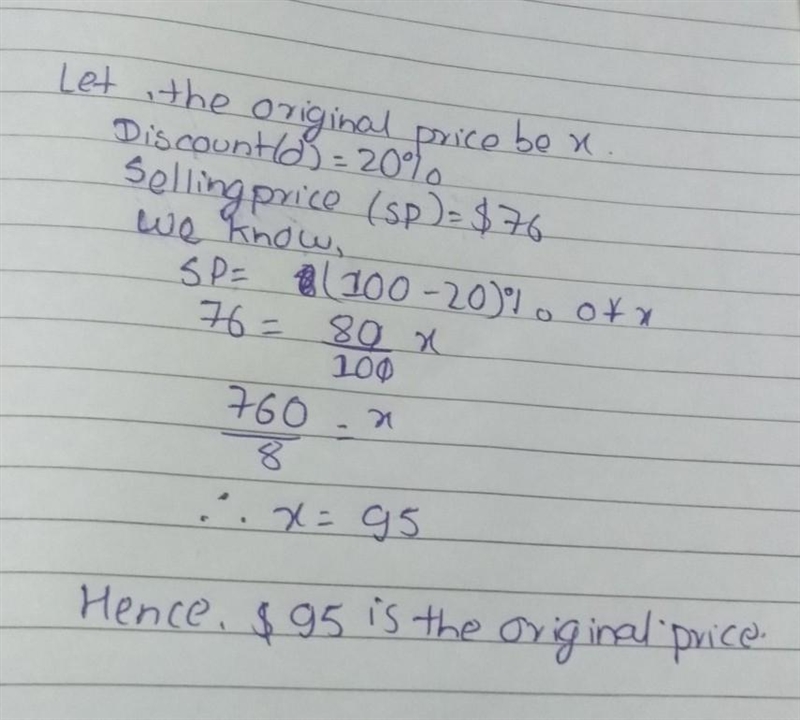 Let, the original price be x.
Discount(d) = 20%
Selling price (SP) = $76
We know,
SP = (100 - 20)% of x
76 = 80/100 x
760/8 = x
∴ x = 95
Hence, $95 is the original price.